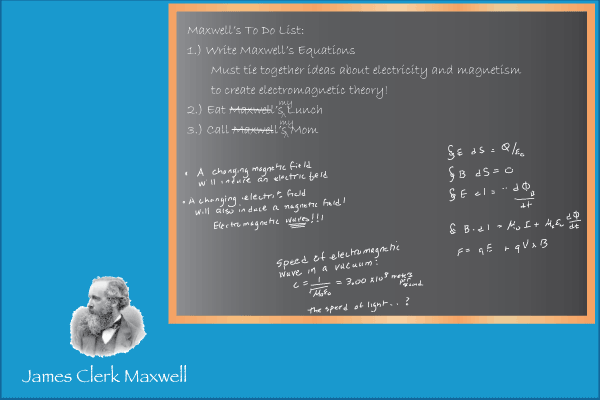 Maxwell's To Do List:
1.) Write Maxwell's Equations
Must tie together ideas about electricity and magnetism
to create electromagnetic theory!
2.) Eat Maxwell's my Lunch
3.) Call Maxwell's my Mom
• A changing magnetic field
will induce an electric field
• A changing electric field
will also induce a magnetic field!
Electromagnetic waves!!!
∮E dS = Q/ε₀
∮B dS = 0
∮E dl = - dΦ_B/dt
∮B·dl = μ₀I + μ₀ε₀ dΦ/dt
F = qE + qV×B
speed of electromagnetic
wave in a vacuum:
c = 1/√μ₀ε₀ = 3.00 x10⁸ meters per second
the speed of light...?
James Clerk Maxwell